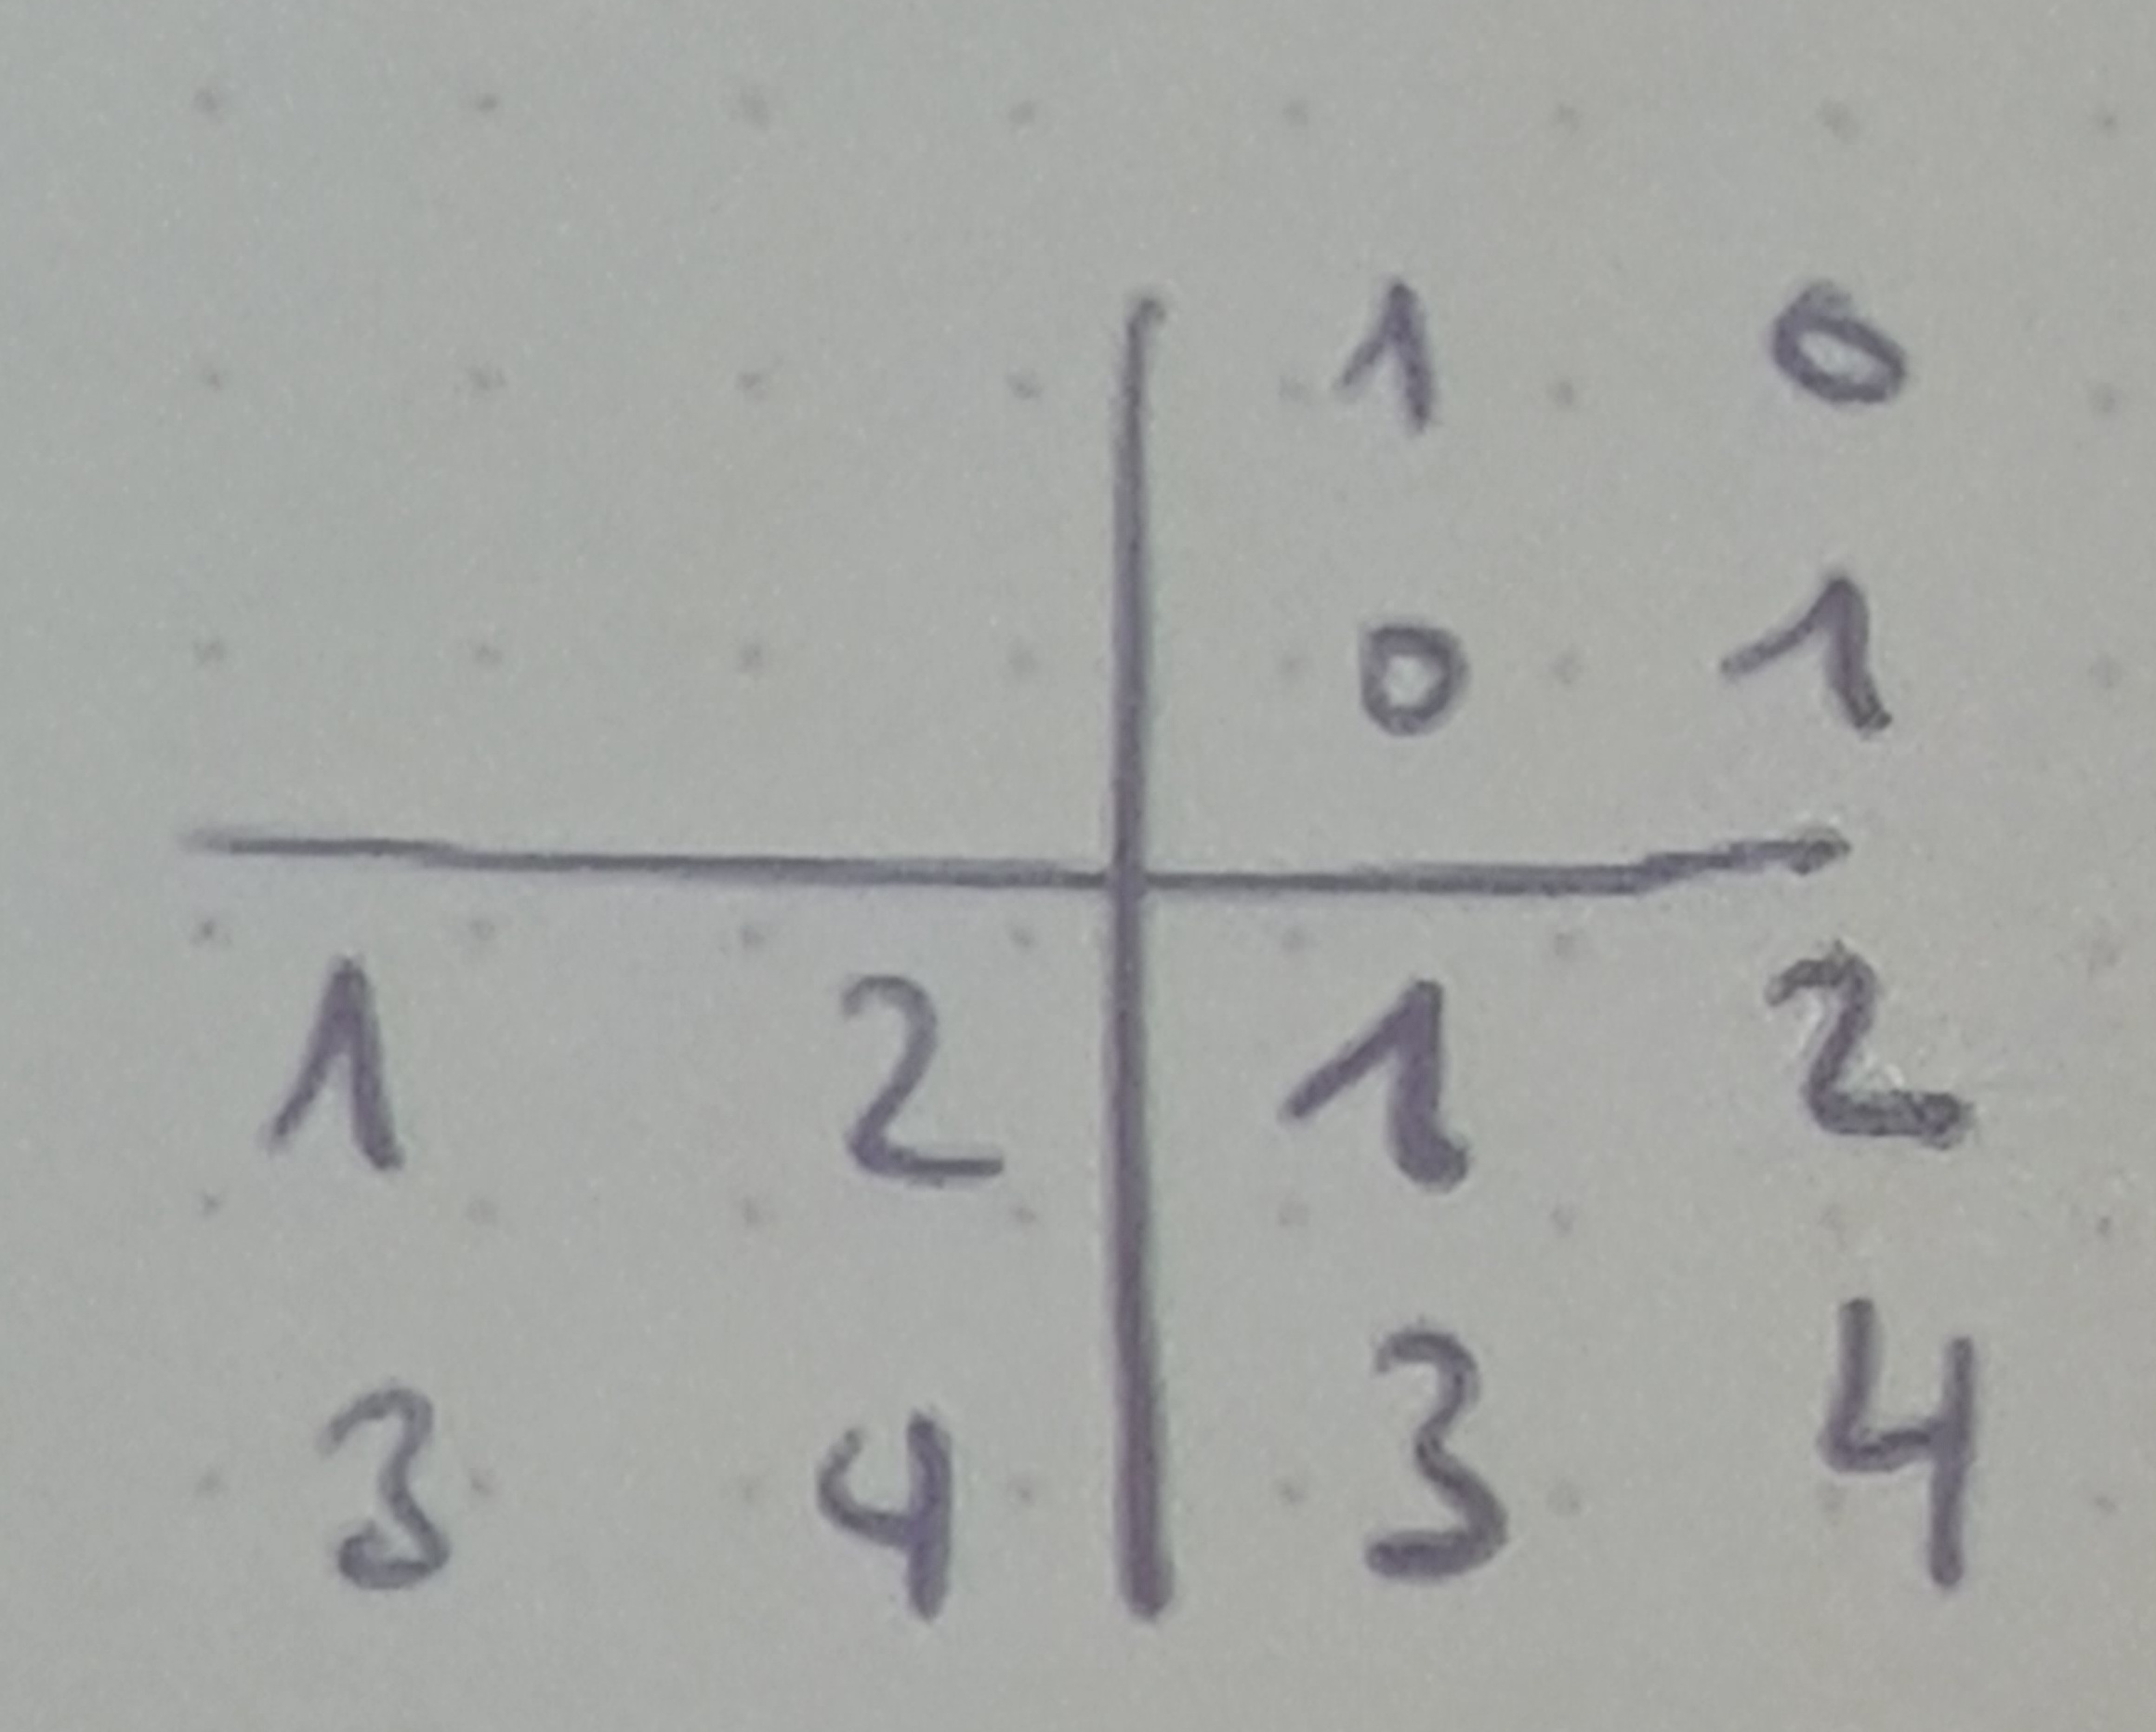 1 0
0 1
1 2 1 2
3 4 3 4